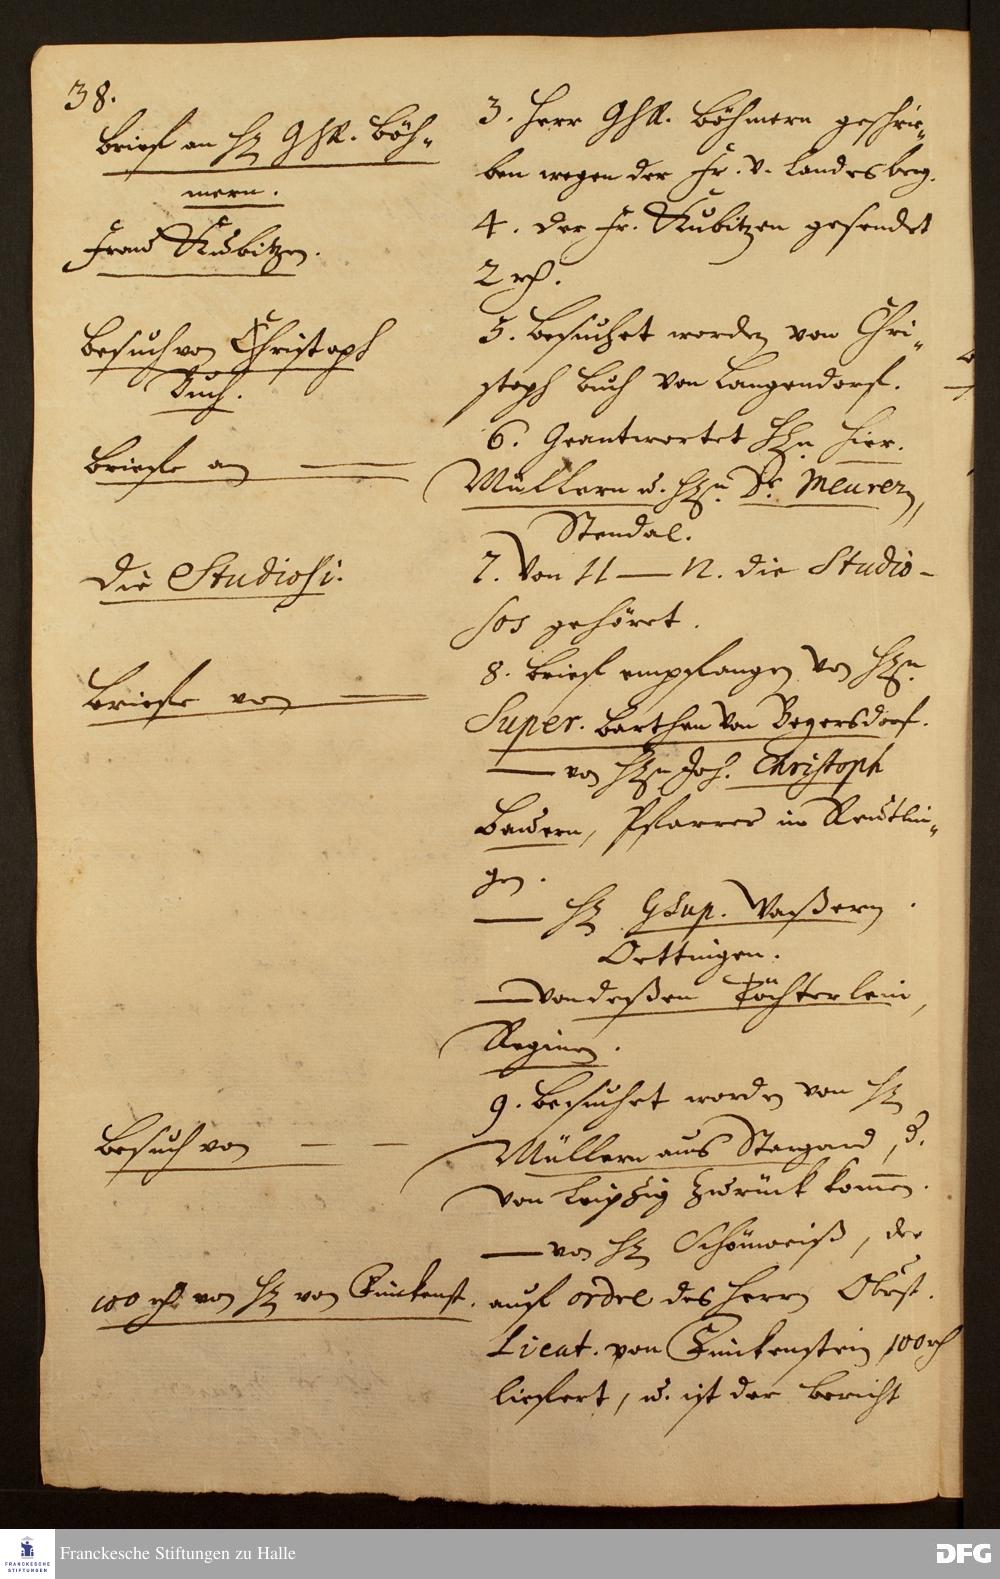 38.
Brief an H. GhR. Böh-
mern.
Frau Kubitzen.
Besuch von Christoph
Buch.
Briefe an ——
Die Studiosi.
Briefe von ——
Besuch von — —
100 rthl. von H. von Finckenst.
3. Herr GhR. Böhmern geschrie-
ben wegen der Fr. v. Landesberg.
4. Der Fr. Kubitzen gesendet
2 rth.
5. Besuchet worden von Chri-
stoph Buch von Langendorf.
6. Geantwortet HEn hier.
Müllern u. HEn D. Meurer,
Stendal.
7. Von 11 — 12. die Studio-
sos gehöret.
8. Brief empfangen von HEn
Super. Barthen von Begersdorf.
— von HEn Joh. Christoph
Bauern, Pfarrer in Reutlin-
gen.
— H. GSup. Waßern
Oettingen.
— von deßen Töchterlein,
Reginen.
9. Besuchet worden von H.
Müllern aus Stargard, d.
von Leipzig zurück kommen.
— von H. Schönweiß, der
auf ordre des Herrn Obrist.
Lieut. von Finckenstein 100 rth
liefert, u. ist der Bericht
Franckesche Stiftungen zu Halle
FRANCKESCHE
STIFTUNGEN
DFG